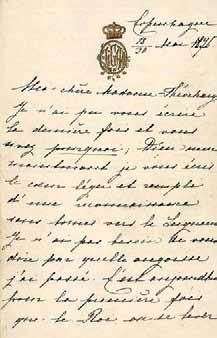 Copenhague
18/30 Mai 1876
Ma chère Madame
Je n'ai pu vous écrire
la dernière fois et vous
savez pourquoi; Dieu merci
maintenant je vous écris
le cœur léger et remplie
d'une reconnaissance
sans bornes vers le Seigneur
Je n'ai pas besoin de vous
dire par quelle angoisse
j'ai passé. C'est aujourd'hui
pour la première fois
que le Roi ou se lever